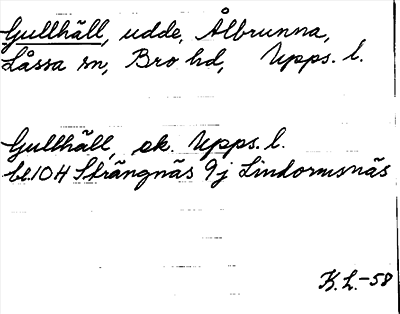 Gullhäll, udde, Ålbrunna,
Låssa sn, Bro hd, Upps. l.
Gullhäll, ek. Upps. l.
bl. 10H Strängnäs 9j Lindormsnäs
K.L.-58